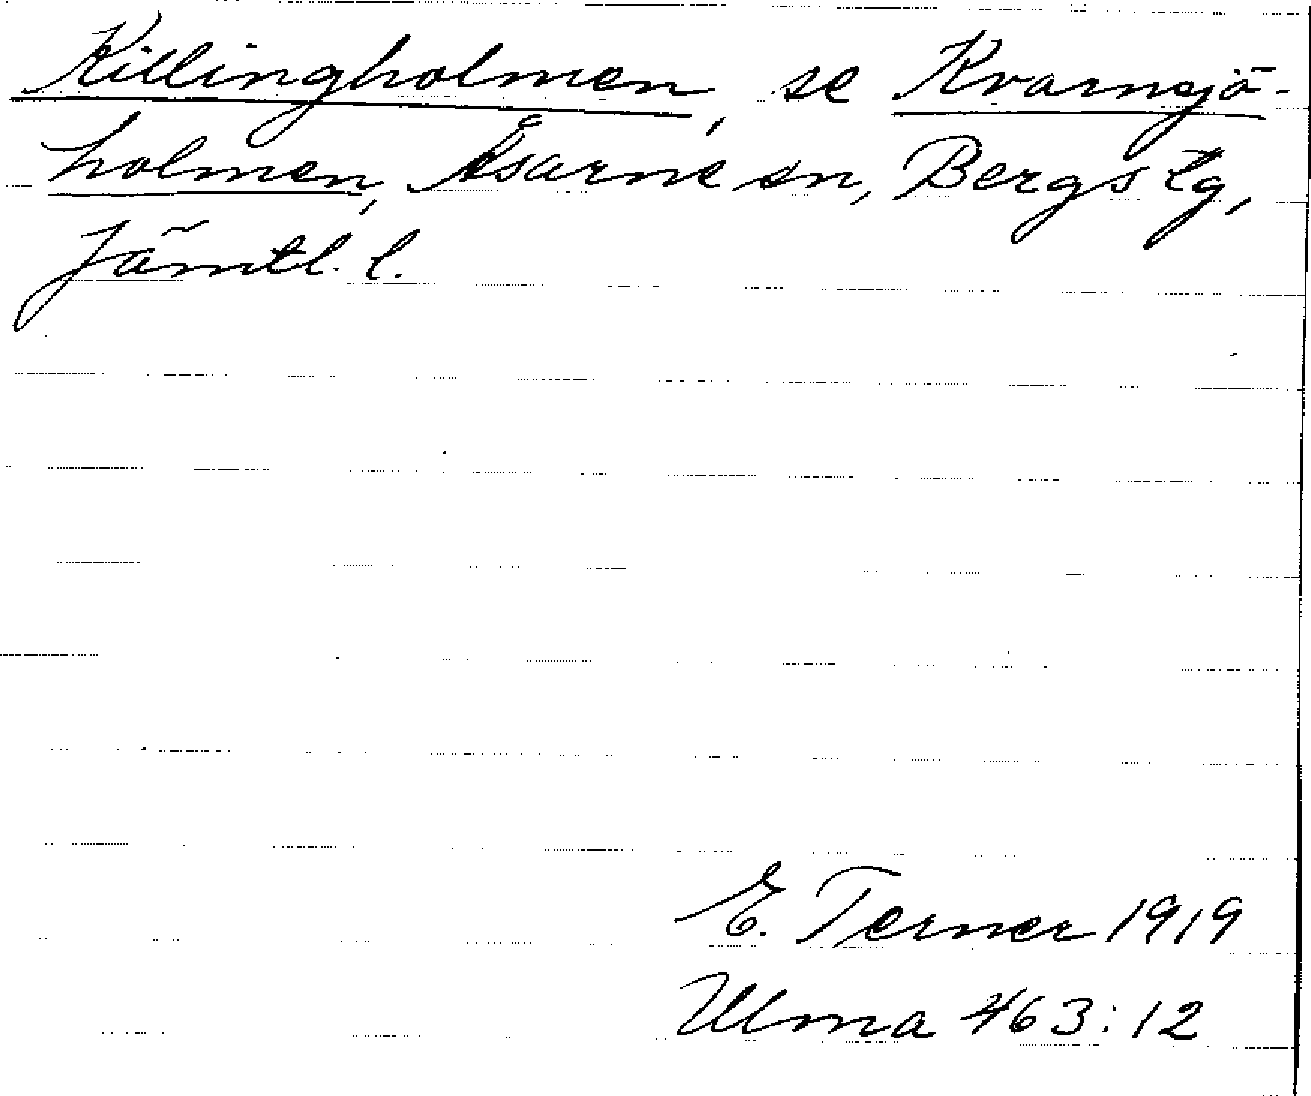 Killingholmen, se Kvarnsjö-
holmen, Åsarne sn, Bergs tg,
Jämtl. l.
E. Terner 1919
Ulma 463:12